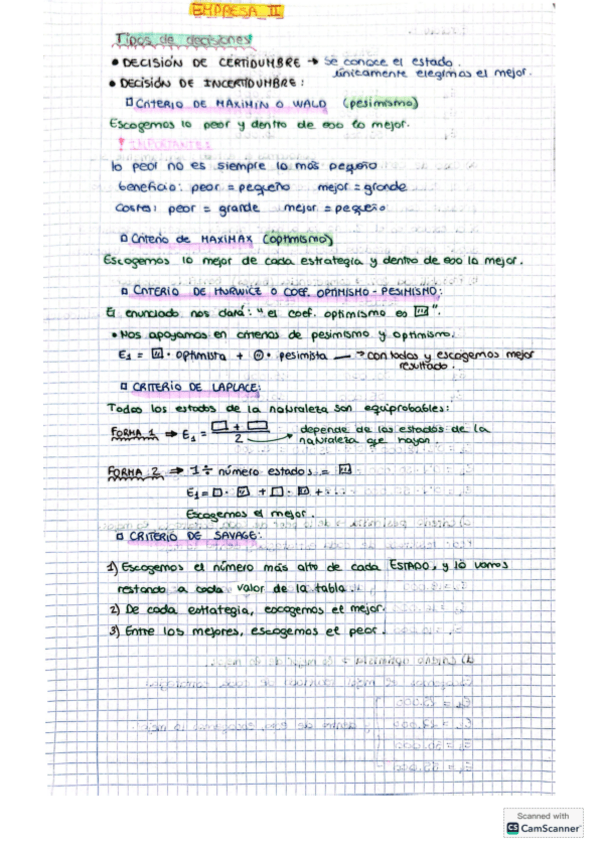 EMPRESA II
Tipos de decisiones
• DECISIÓN DE CERTIDUMBRE → se conoce el estado.
únicamente elegimos el mejor.
• DECISIÓN DE INCERTIDUMBRE:
□ CRITERIO DE MAXIMIN O WALD (pesimismo)
Escogemos lo peor y dentro de eso lo mejor.
! IMPORTANTE:
lo peor no es siempre lo más pequeño
beneficio: peor = pequeño mejor = grande
Costes: peor = grande mejor = pequeño
□ Criterio de MAXIMAX (optimismo)
Escogemos lo mejor de cada estrategia y dentro de eso lo mejor.
□ CRITERIO DE HURWICZ O COEF. OPTIMISMO - PESIMISMO:
El enunciado nos dará: "el coef. optimismo es □".
• Nos apoyamos en criterios de pesimismo y optimismo:
E1 = □ · optimista + ○ · pesimista → con todas y escogemos mejor
resultado.
□ CRITERIO DE LAPLACE:
Todos los estados de la naturaleza son equiprobables:
FORMA 1 ⇒ E1 = □ + □ / 2 → depende de los estados de la
naturaleza que hayan.
FORMA 2 ⇒ 1 ÷ número estados = □
E1 = □ · □ + □ · □ + ...
Escogemos el mejor.
□ CRITERIO DE SAVAGE:
1) Escogemos el número más alto de cada ESTADO, y lo vamos
restando a cada valor de la tabla.
2) De cada estrategia, escogemos el mejor.
3) Entre los mejores, escogemos el peor.
Scanned with
CS CamScanner